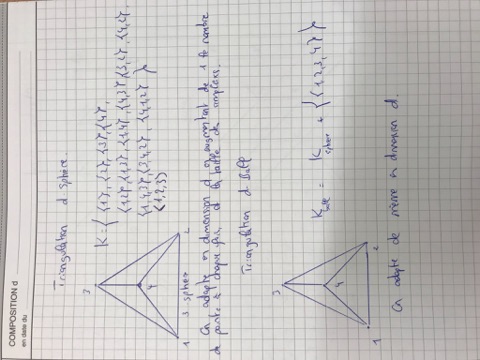 COMPOSITION d
en date du
Triangulation d Sphère
K = { {1}, {2}, {3}, {4},
{1,2}, {1,3}, {1,4}, {4,3}, {3,2}, {4,2},
{1,4,3}, {3,4,2}, {4,1,2} }
{1,2,3}
3
4
1
2
3 sphere
On adapte en dimension d en augmentant de 1 le nombre
de points à chaque fois, et la taille de simplexes.
Triangulation d Ball
K ball = K sphere + { {1,2,3,4} }
3
4
1
2
On adapte de même en dimension d.